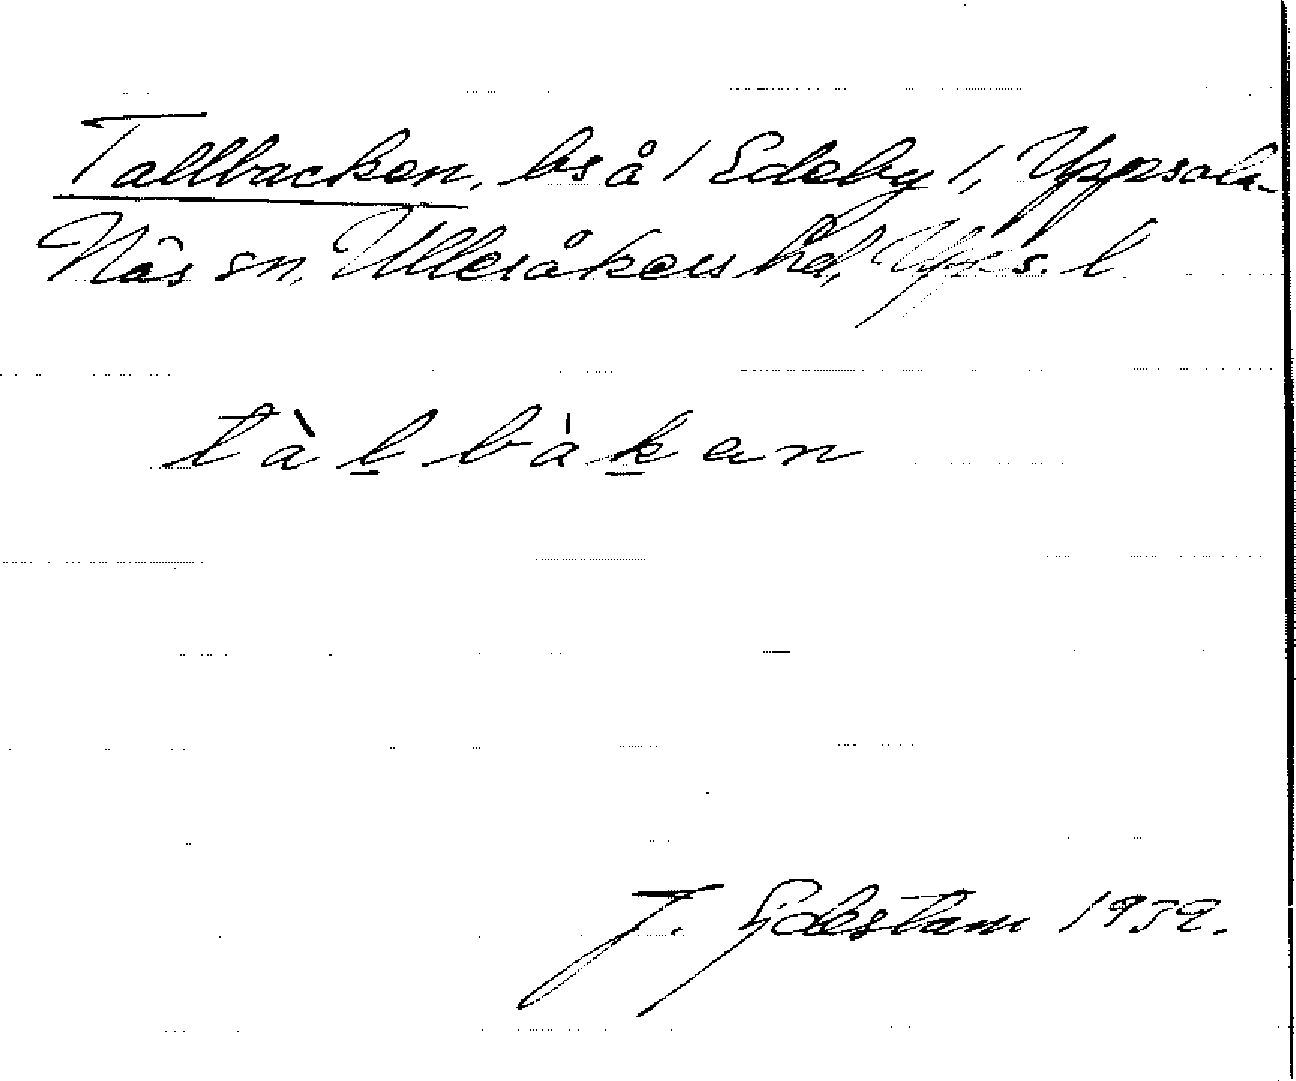 Tallbacken, bs å / Edeby /, Uppsala-
Näs sn, Ulleråkers hd, Upps. l
tàlbàkan
J. Sjdestam 1952.